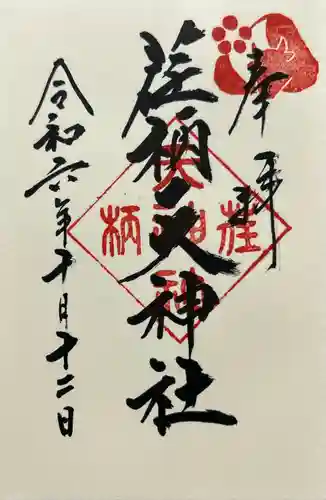 奉拝
荏柄天神社
令和六年十月十二日
荏柄
天神
社